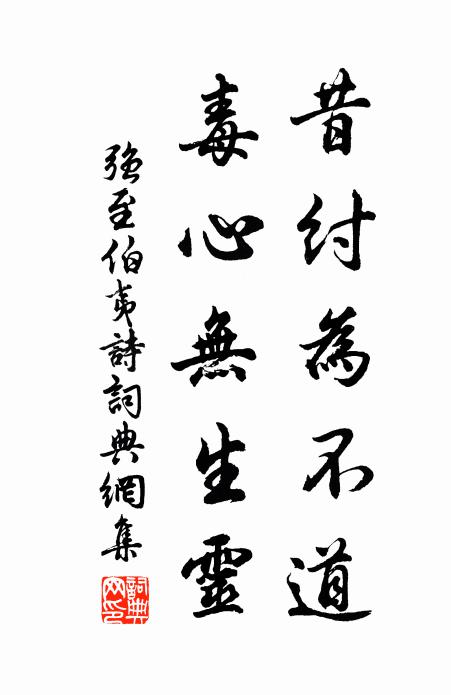 昔紂為不道
毒心無生靈
強至伯夷詩詞典網集
詞典網印